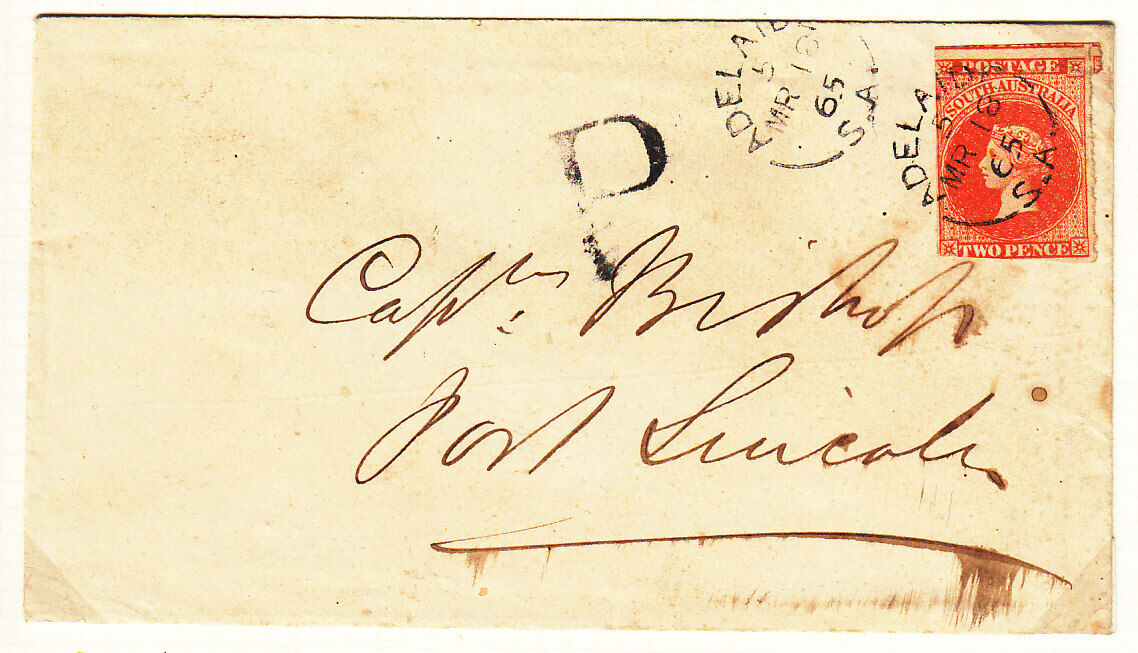 ADELAIDE
5
MR 18
65
S.A.
ADELAIDE
5
MR 18
65
S.A.
POSTAGE
SOUTH AUSTRALIA
TWO PENCE
P
Captn. Bishop
Port Lincoln